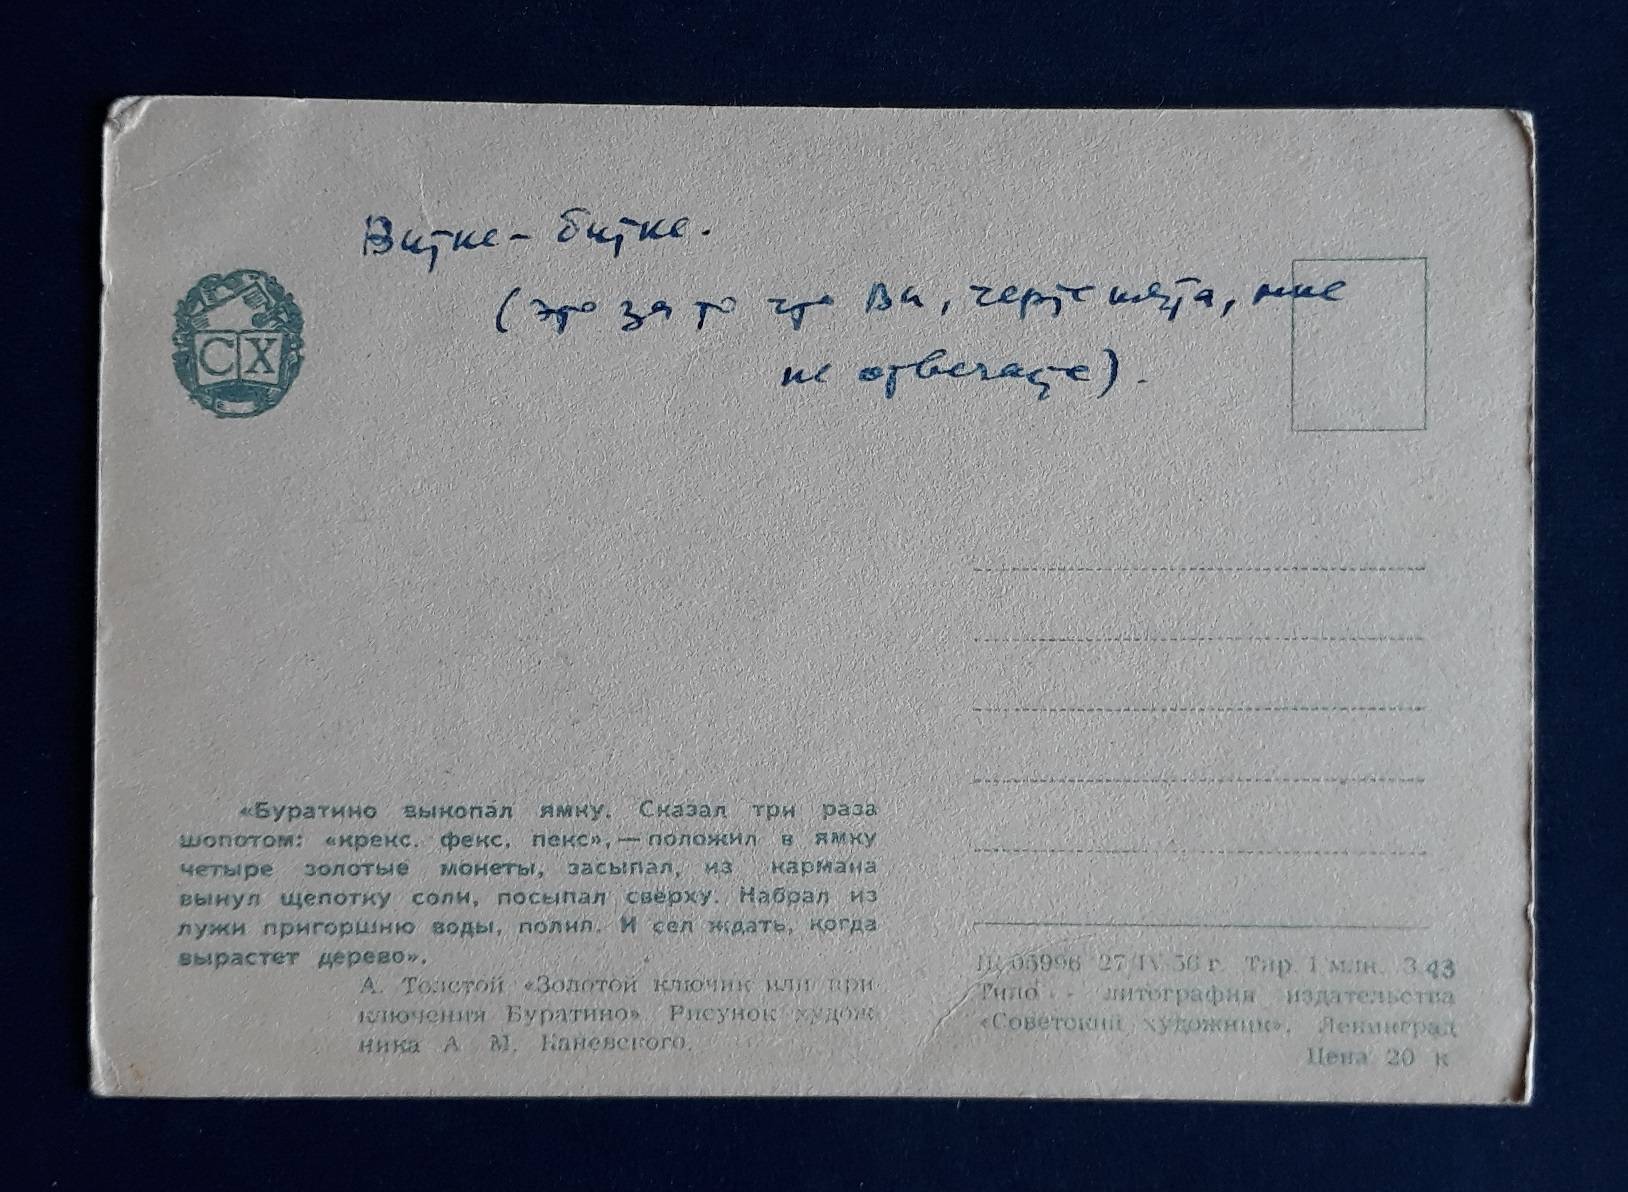 Витке-битке.
(это за то что Вы, чертенята, мне
не отвечаете).
С Х
«Буратино выкопал ямку. Сказал три раза
шопотом: «крекс, фекс, пекс»,—положил в ямку
четыре золотые монеты, засыпал, из кармана
вынул щепотку соли, посыпал сверху. Набрал из
лужи пригоршню воды, полил. И сел ждать, когда
вырастет дерево».
А. Толстой «Золотой ключик или при
ключения Буратино» Рисунок худож
ника А М. Каневского.
05996 27/IV 56 г. Тир. 1 млн. З 43
Типо - литография издательства
«Советский художник», Ленинград
Цена 20 к